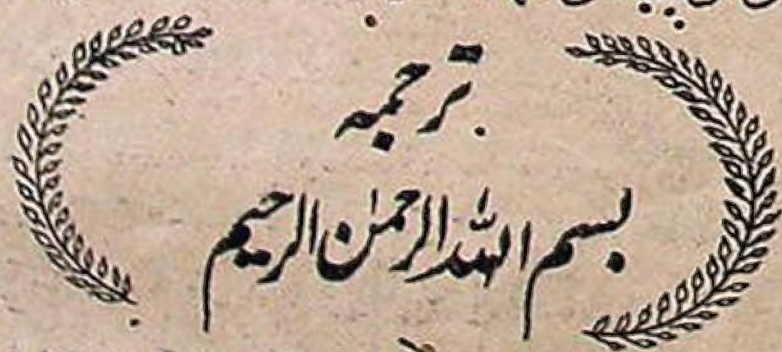 ترجمہ
بسم اللہ الرحمٰن الرحیم